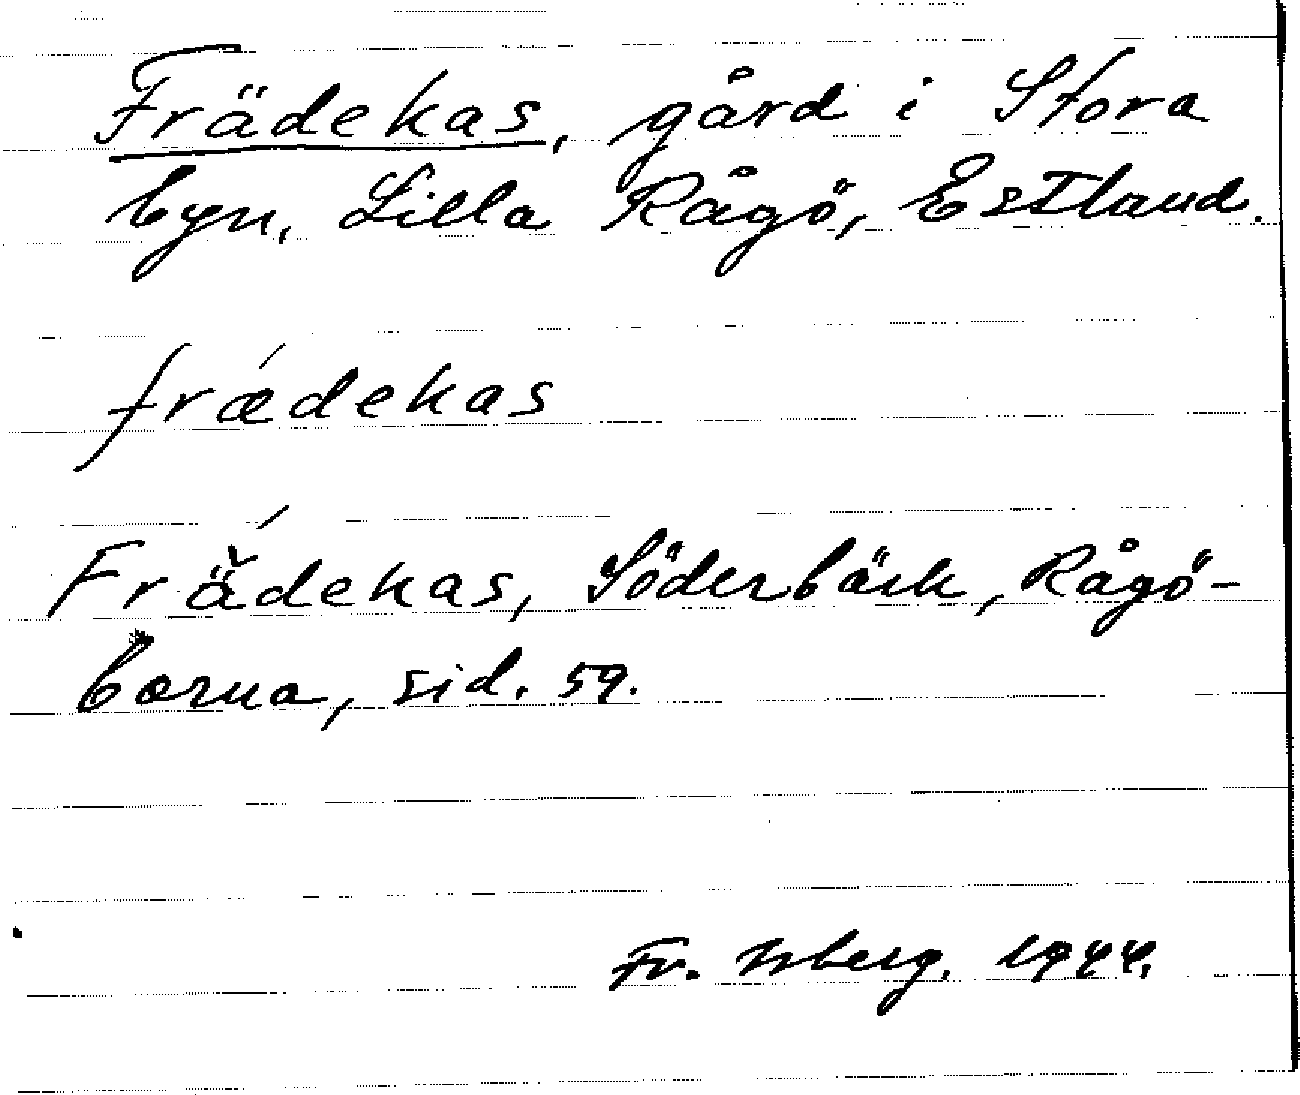 Frädekas, gård i Stora
byn, Lilla Rågö, Estland.
frǽdekas
Frä̆́dekas, Söderbäck, Rågö-
borna, sid. 59.
Fr. Isberg. 1944.